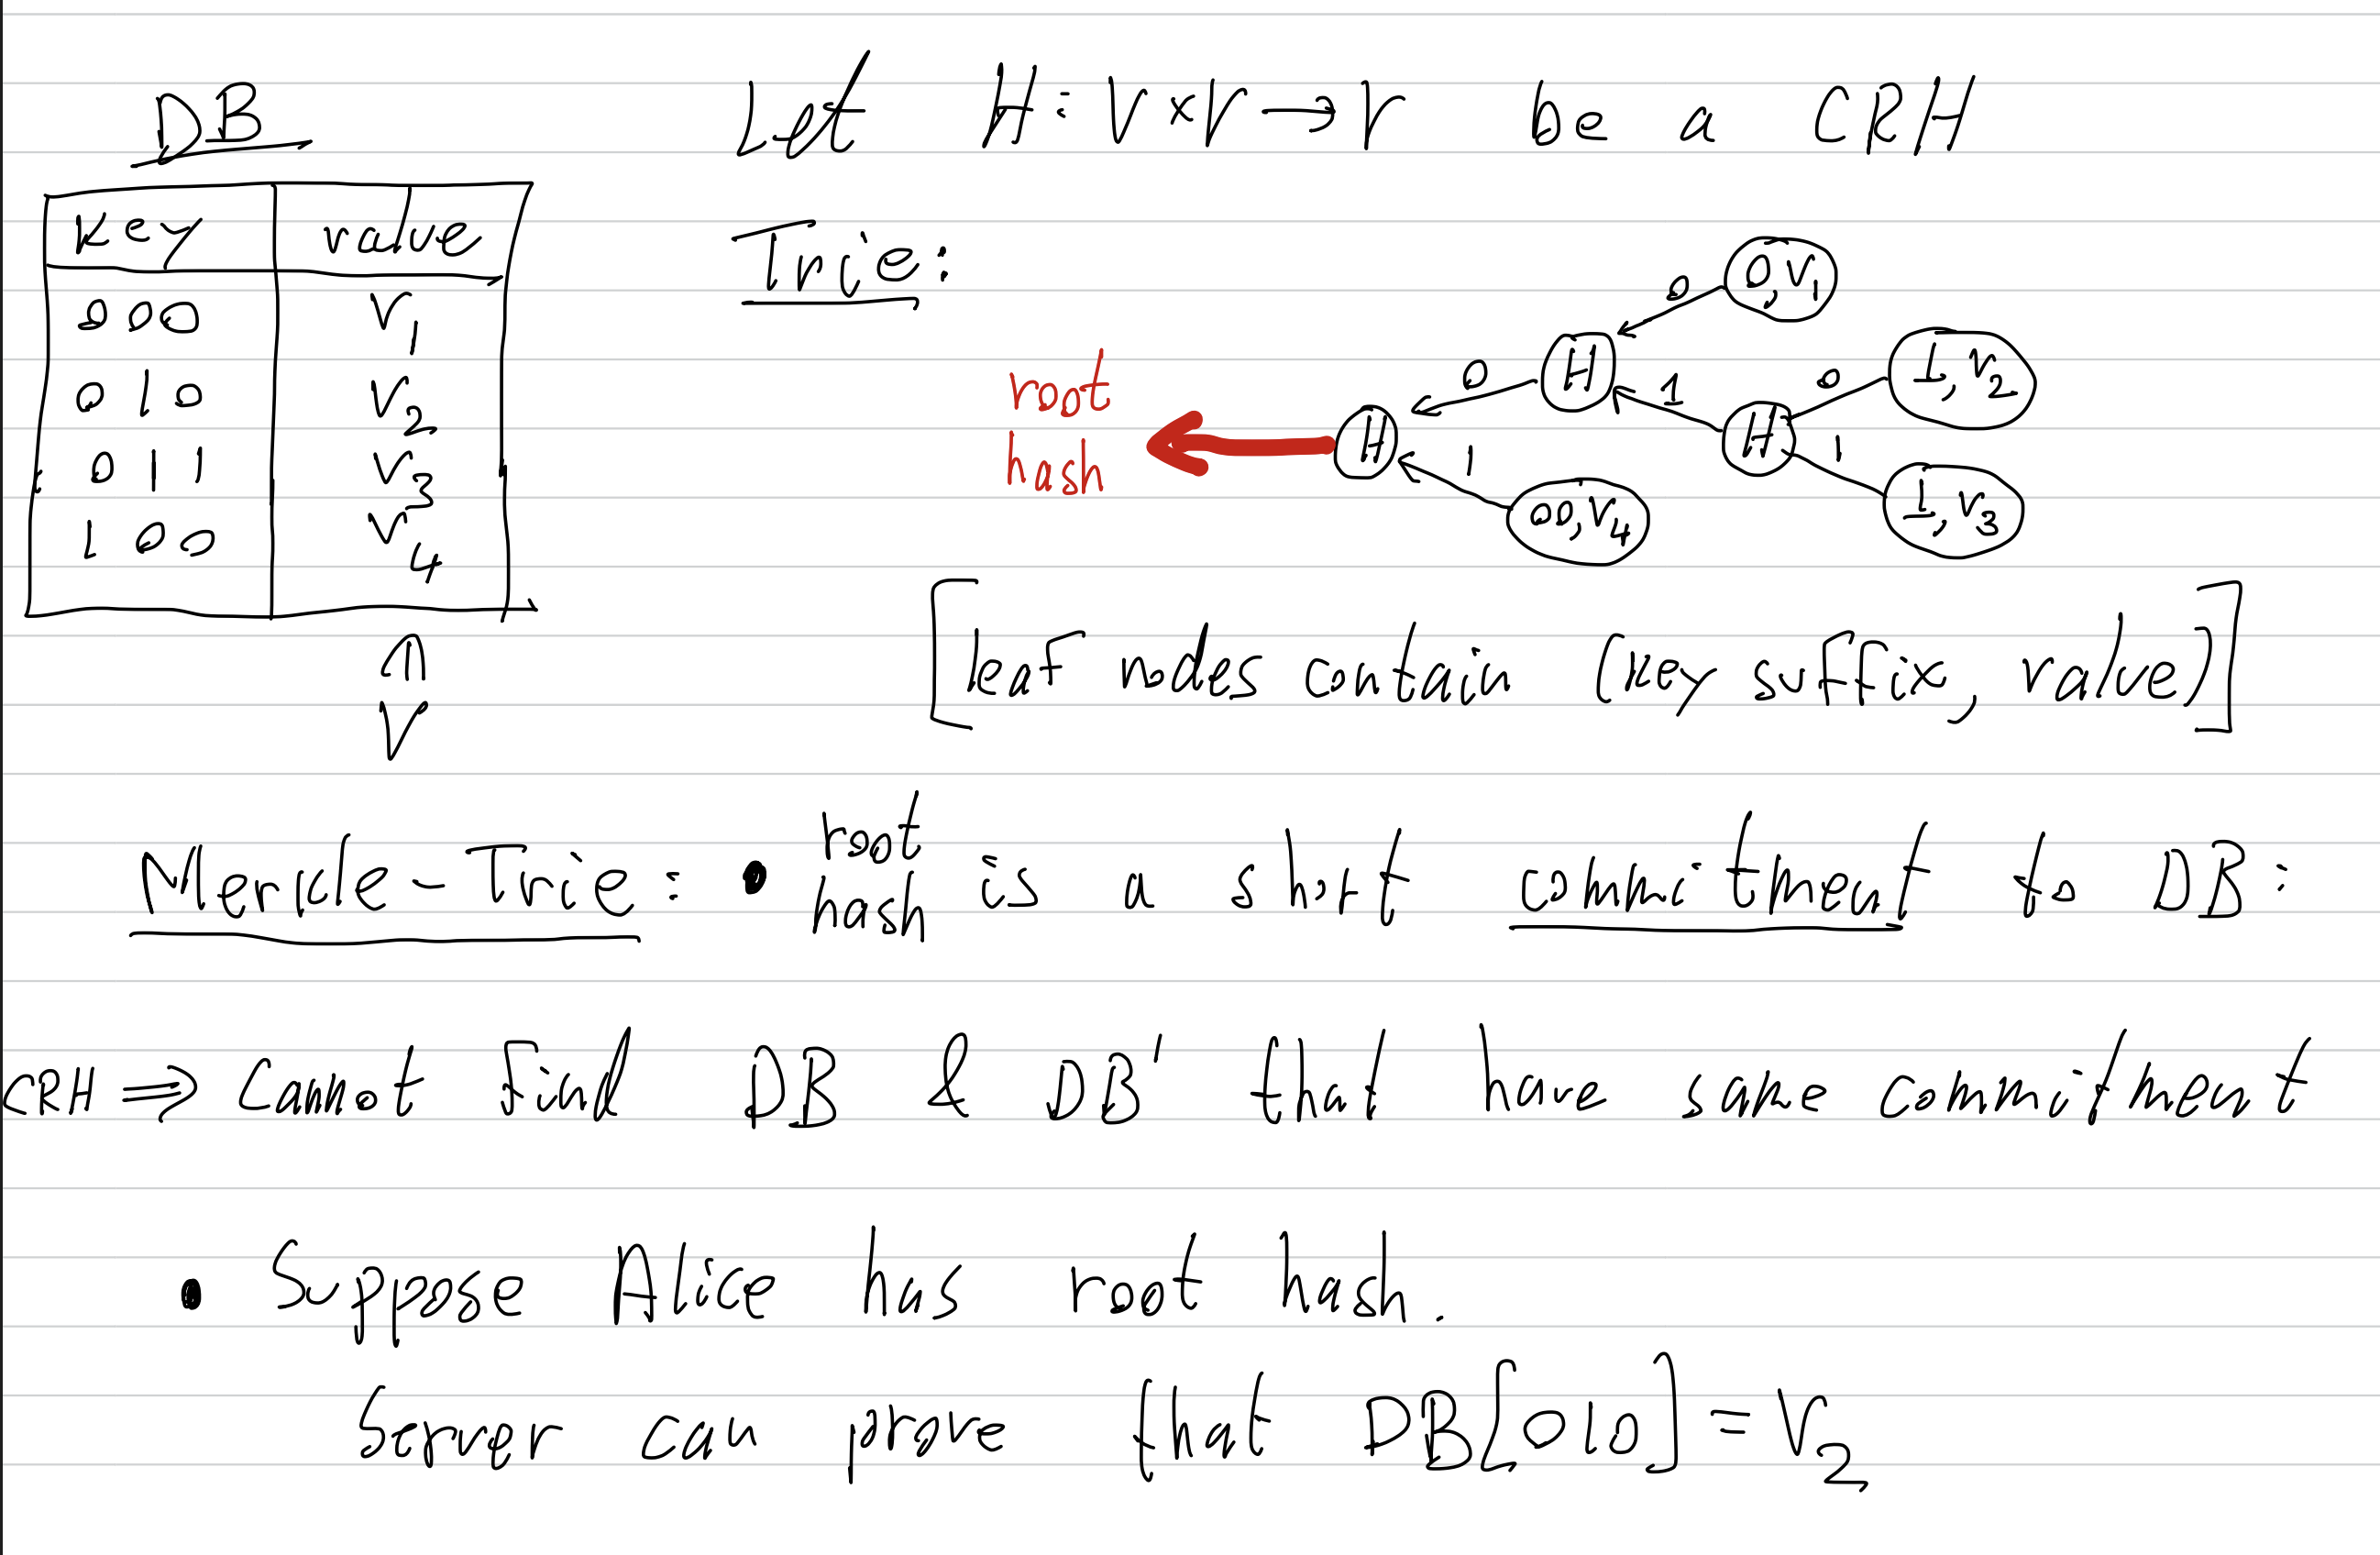 DB
Let H: V×V → V be a CRH
key value
000 V1
010 V2
011 V3
100 V4
Trie:
root
hash
H
0
H
0
0,V1
1
H
0
1,V2
1
1,V3
1
00,V4
[leaf nodes contain (key suffix, value)]
⇕
Merkle-Trie: • root hash is a short commitment to DB:
CRH ⇒ cannot find DB & DB' that have same commitment
• Suppose Alice has root hash.
Server can prove that DB[010] = V2